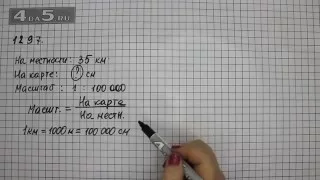 4DA5.RU
1297.
На местности: 35 км
На карте: ? см
Масштаб: 1 : 100 000
Масшт. = На карте / На местн.
1км = 1000 м = 100 000 см